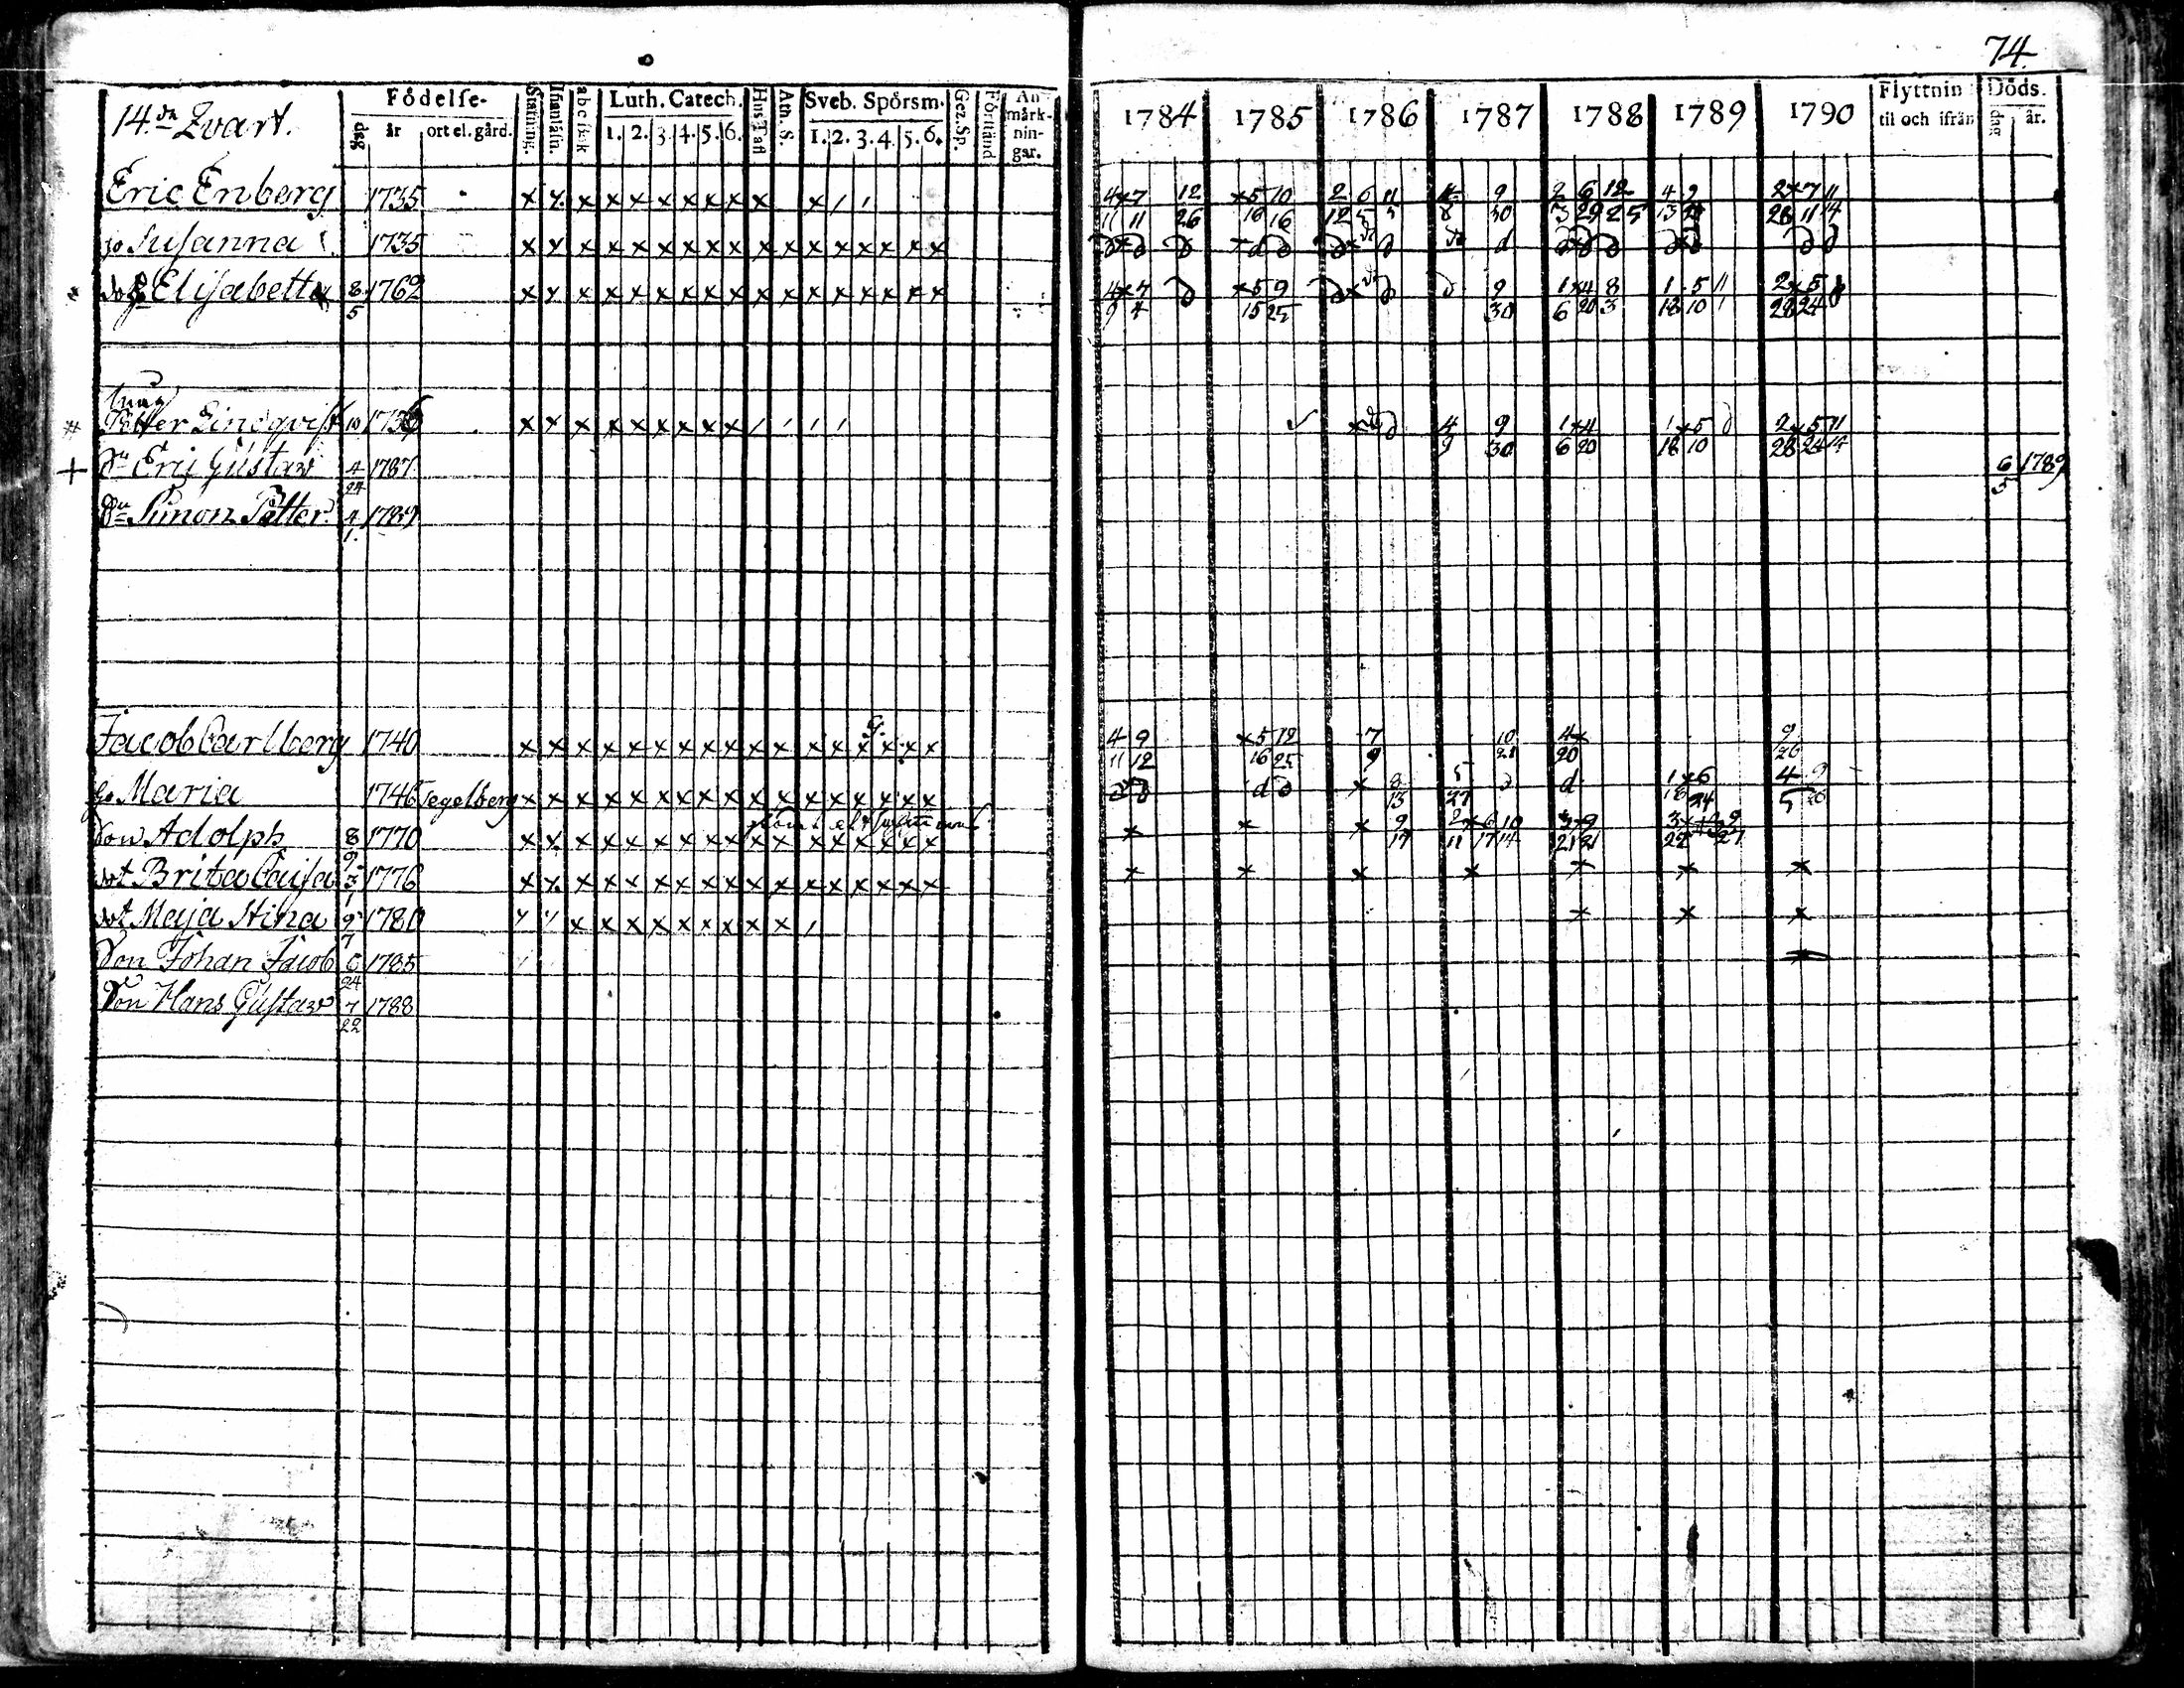 74.
14.de Zvart.
Födelse-
dag
år
ort el. gård.
Stafning.
Innanläsn.
Luth. Catech.
1. 2. 3. 4. 5. 6.
Ath. S.
Sveb. Spörsm.
1. 2. 3. 4. 5. 6.
Gez. Sp.
Förstånd
An
märk-
nin-
gar.
1784 1785 1786 1787 1788 1789 1790
Flyttnin
til och ifrån
Döds.
dag
år.
Eric Enberg 1735 x x x x x x x x x x x / /
4x7 12 x5 10 2 6 11 9 2 6 12 4 9 2x7 11
11 11 26 16 16 12 5 3 8 30 3 29 25 13 28 11 14
Susanna 1735 x x x x x x x x x x x x x x x x x
Elisabetta 8 1762 x x x x x x x x x x x x x x x x x
5
4x7 x5 9 9 1x4 8 1 5 11 2x5
9 4 15 25 30 6 20 3 18 10 28 24
Petter Lindqvist 10 x x x x x x x x x / / / /
4 9 1x4 1x5 2x5 11
9 30 6 20 18 10 28 24 14
Eric Gustav 4 1787 6 1789
24 5
Simon Petter. 4 1789
1.
Jacob Carlberg 1740 x x x x x x x x x x x x x x x x x
4 9 x5 12 7 10 4x 9
11 12 16 25 9 21 20 26
Maria 1746 Tegelberg x x x x x x x x x x x x x x x x x
d d x 8 5 d d 1x6 4 9
13 27 18 24 5 26
Son Adolph 8 1770 x x x x x x x x x x x x x x x x x
9
x x x 9 2x6 10 3x9 3x
19 11 17 14 21 21 22 27
Brita Caisa 3 1776 x x x x x x x x x x x x x x x x x
1
x x x x x x x
Maja Stina 9 1780 x x x x x x x x x x x /
7
x x x
Son Johan Jacob 6 1785
24
x
Son Hans Gustav 7 1788
22